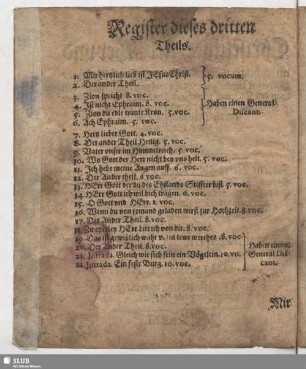 Register dieses dritten
Theils.
1. Mir hertzlich lieb ist JEsus Christ.
2. Der ander Theil.
5. vocum.
3. Zion spricht 8. voc.
4. Ist nicht Ephraim. 8. voc.
5. Zion die edle traute Kron. 5. voc.
6. Ach Ephraim. 5. voc.
Haben einen General
Discant.
7. Herr lieber Gott. 4. voc.
8. Der ander Theil. Heilig. 5. voc.
9. Vater unser im Himmelreich. 5. voc.
10. Wo Gott der Herr nicht bey uns helt. 5. voc.
11. Ich hebe meine Augen auff. 6. voc.
12. Der Ander theil. 6. voc.
13. HErr Gott der du die Ehstands Stiffter bist. 5. voc.
14. HErr Gott ich wil dich tragen. 6. voc.
15. O Gott und HErr. 1. voc.
16. Wenn du von jemand geladen wirst zur Hochzeit. 8. voc.
17. Der Ander Theil. 8. voc.
18. Zweyerley HErr bitt ich von dir. 8. voc.
19. Das ist gewißlich wahr 8. voc.
20. Der Ander Theil. 8. voc.
21. Intrada. Gleich wie sich fein ein Vögelein. 10. vo.
22. Intrada. Ein feste Burg. 10. voc.
Haben einen
General Dis-
cant.
Mir
SLUB